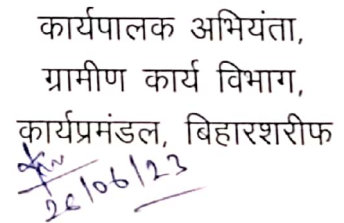 कार्यपालक अभियंता,
ग्रामीण कार्य विभाग,
कार्यप्रमंडल, बिहारशरीफ
26/06/23